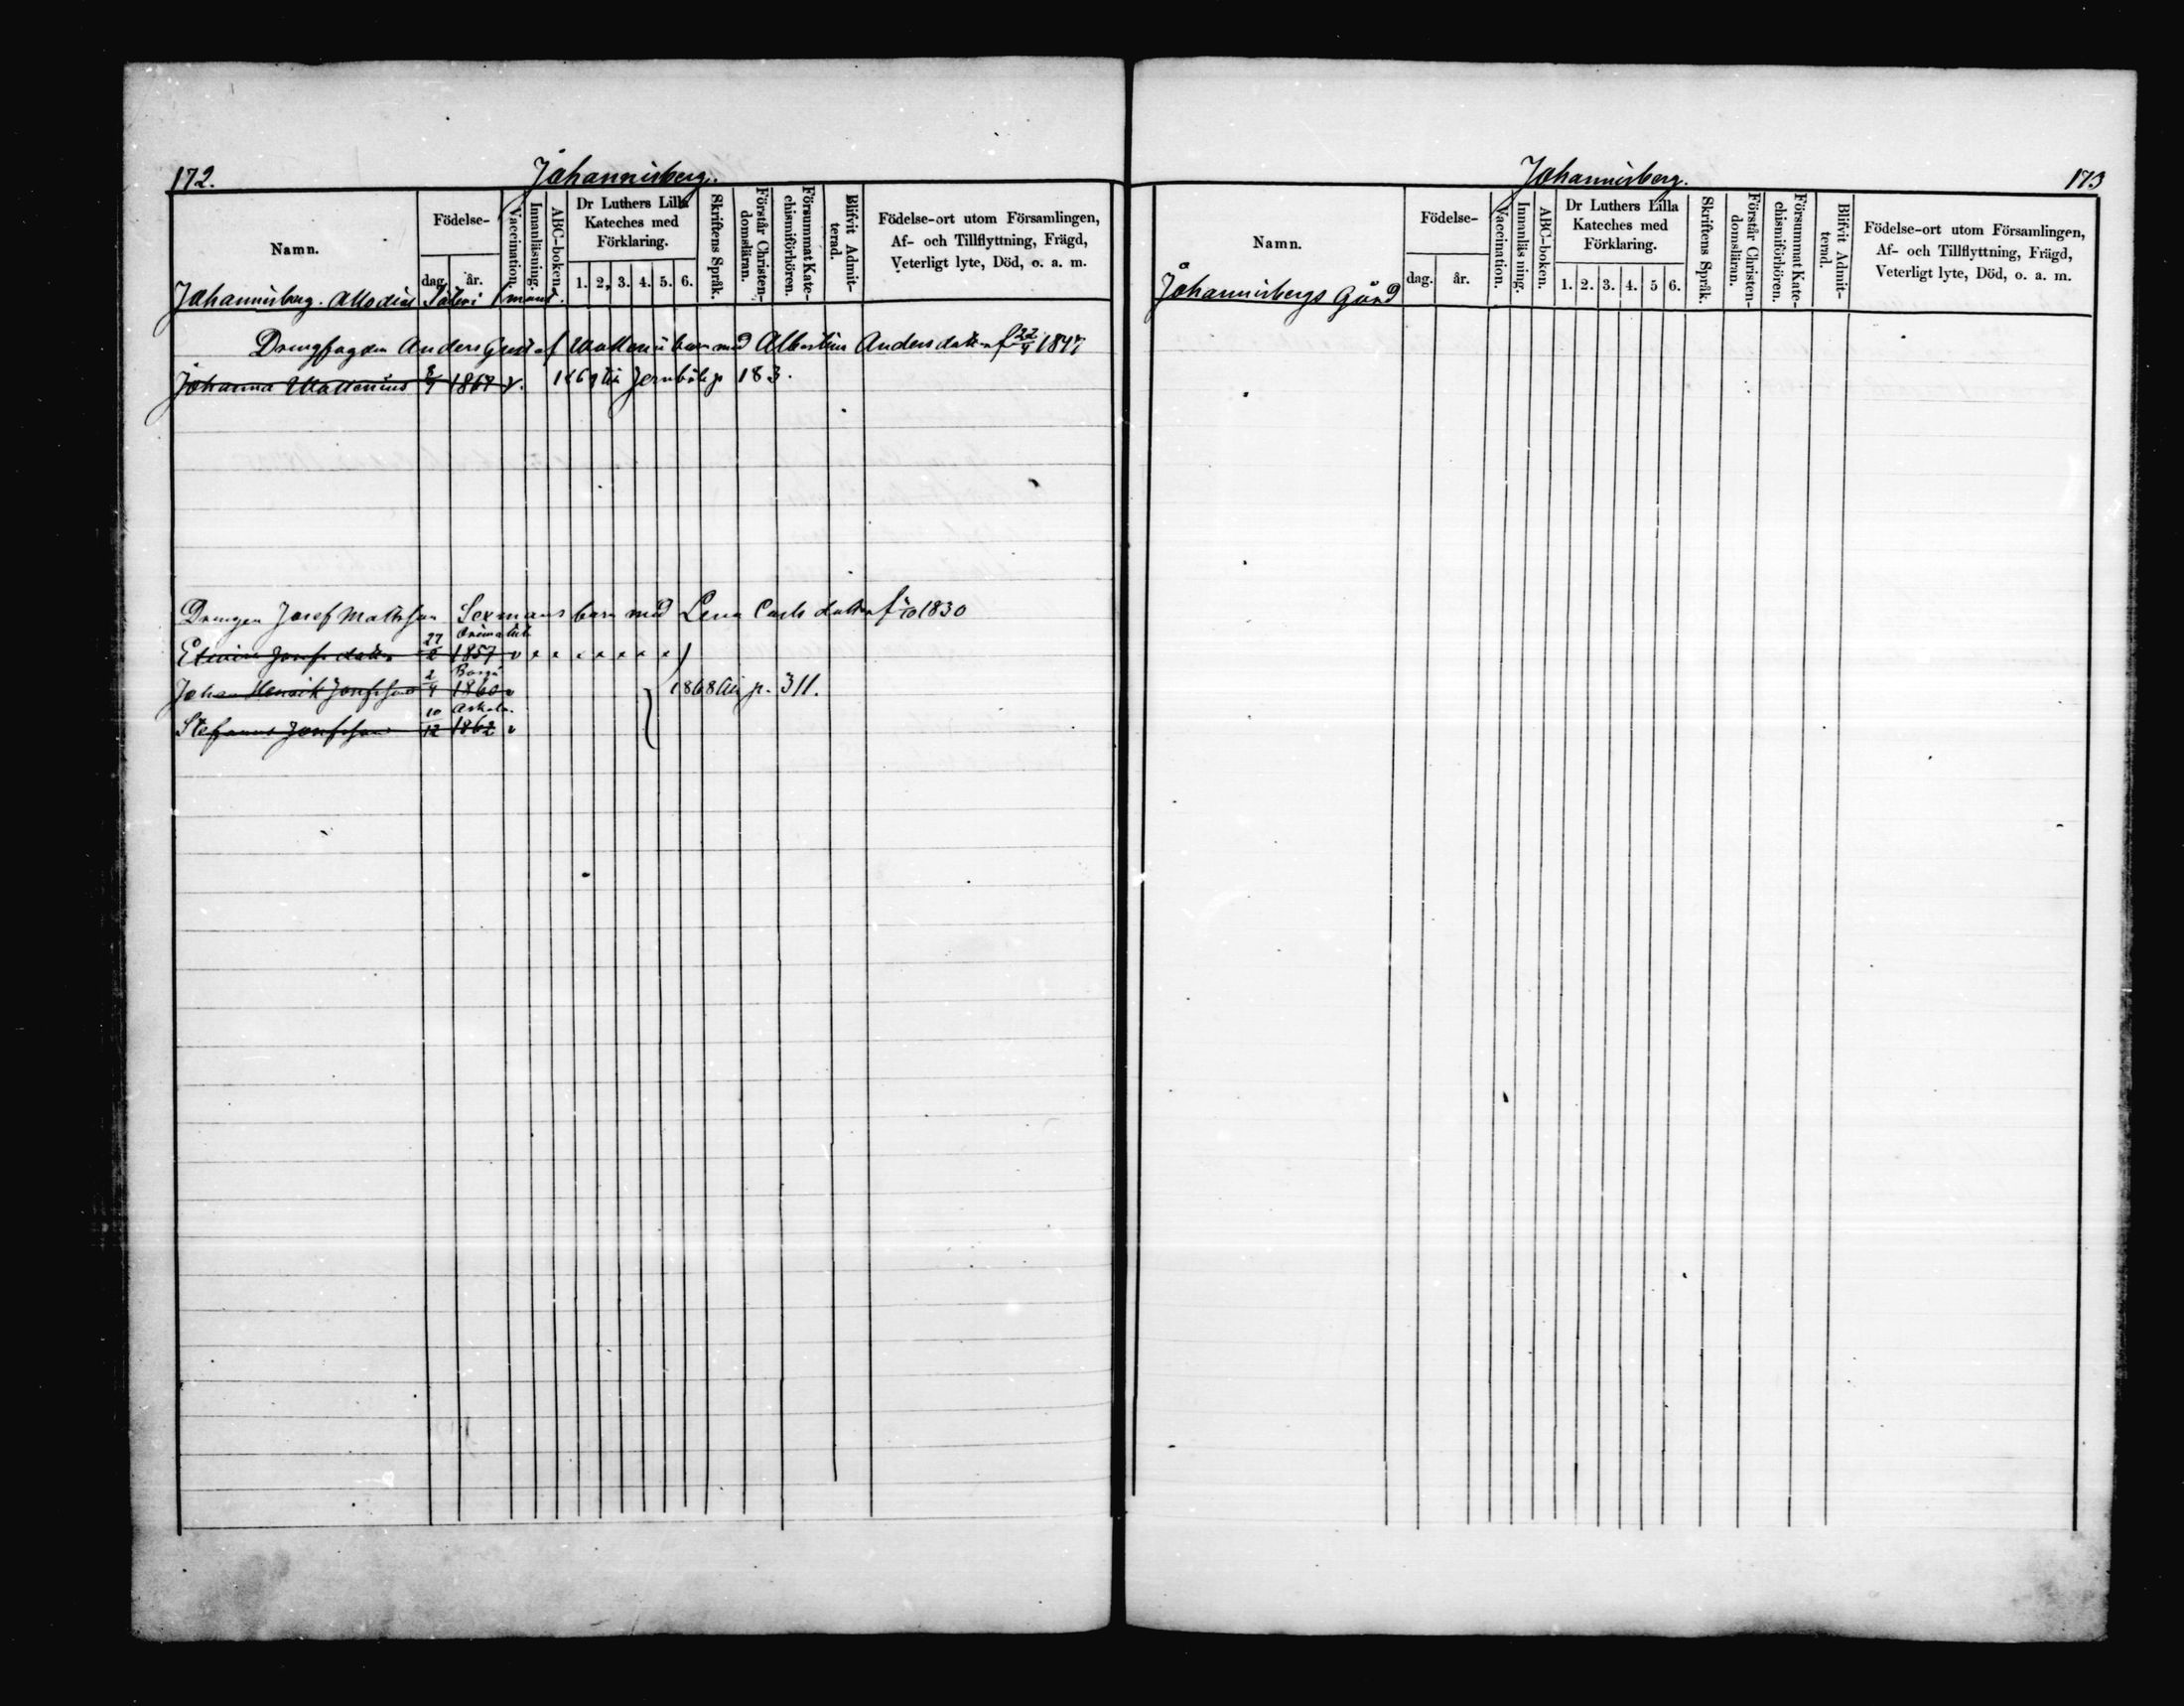 172.
Johannisberg.
Namn.
Födelse-
dag. år.
Vaccination.
Innanläsning.
ABC-boken.
Dr Luthers Lilla
Kateches med
Förklaring.
1. 2, 3. 4. 5. 6.
Skriftens Språk.
Förstår Christen-
domsläran.
Försummat Kate-
chismiförhören.
Blifvit Admit-
terad.
Födelse-ort utom Församlingen,
Af- och Tillflyttning, Frägd,
Veterligt lyte, Död, o. a. m.
Johannisberg. Allodial Säteri
Drengfogden Anders Gustaf barn med Albertina Andersdotter f 22/4 1847
Johanna 3/7 1867 v. 1869 till Jernböle p 183.
Drengen Josef Mattsson Sexmans barn med Lena Carls dotter f 1830
Orimattila
27/2 1857 v x x x x x x x
Borgå
Johan Henrik Josefsson 2/4 1860 v 1868 till p. 311.
Askola.
Stefanus Josefsson 10/12 1862 v
Johannisberg.
173
Namn.
Födelse-
dag. år.
Vaccination.
Innanläsning.
ABC-boken.
Dr Luthers Lilla
Kateches med
Förklaring.
1. 2. 3. 4. 5 6.
Skriftens Språk.
Förstår Christen-
domsläran.
Försummat Kate-
chismiförhören.
Blifvit Admit-
terad.
Födelse-ort utom Församlingen,
Af- och Tillflyttning, Frägd,
Veterligt lyte, Död, o. a. m.
Johannisbergs Gård